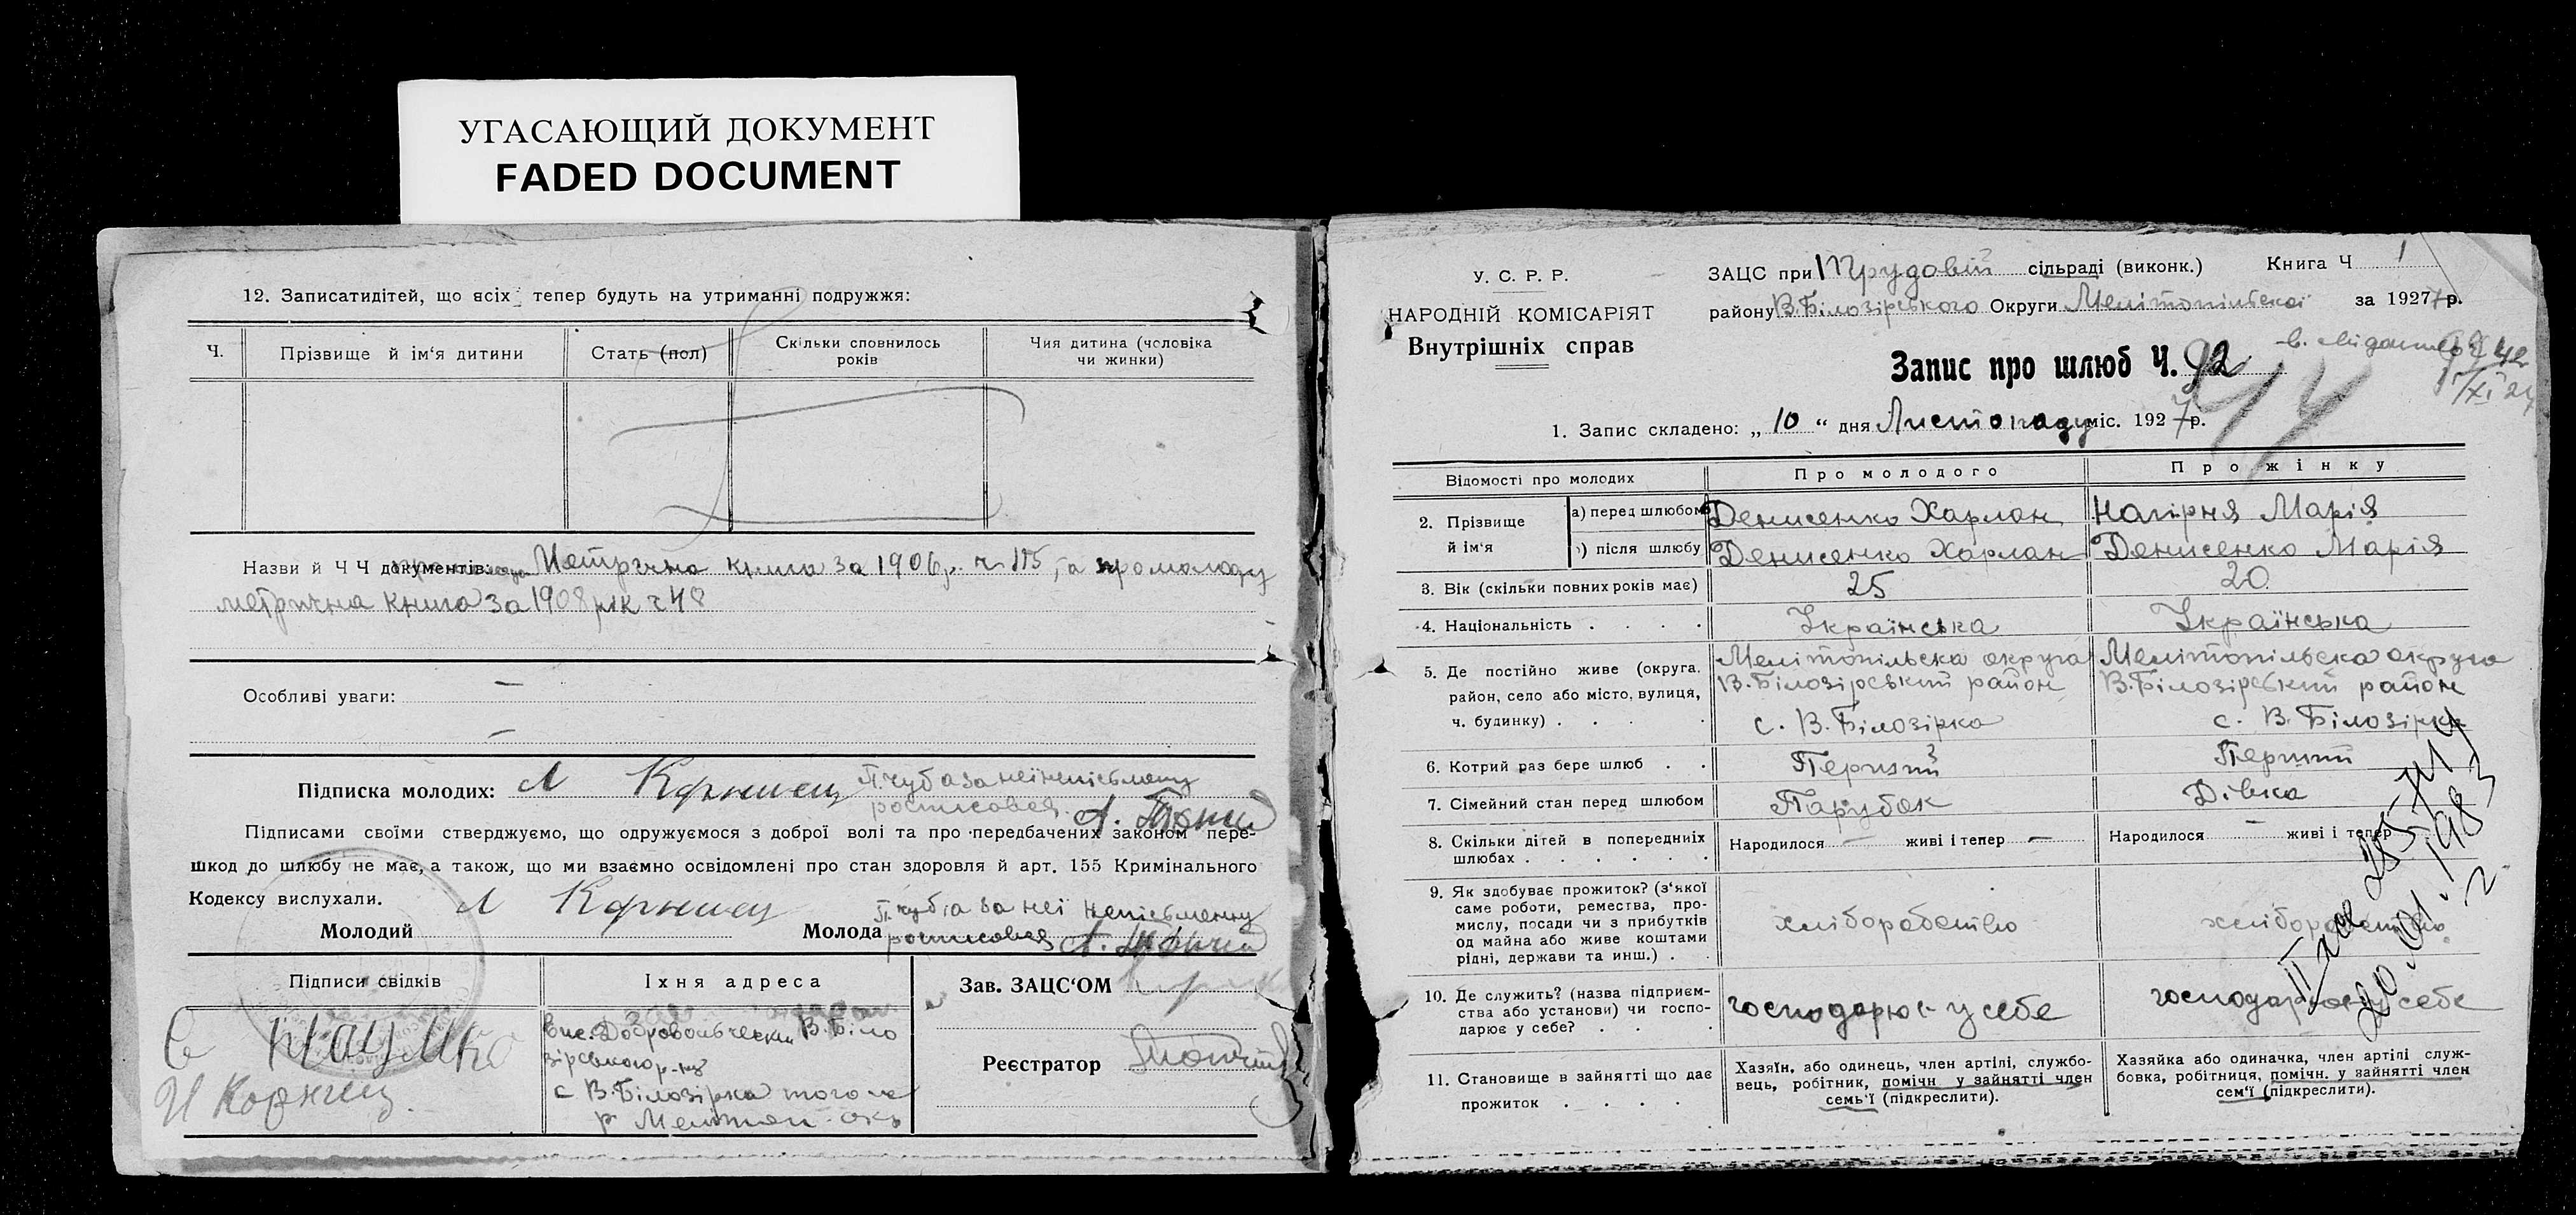 УГАСАЮЩИЙ ДОКУМЕНТ
FADED DOCUMENT
12. Записатидітей, що всіх тепер будуть на утриманні подружжя:
Ч.
Прізвище й ім'я дитини
Стать (пол)
Скільки сповнилось
років
Чия дитина (чоловіка
чи жинки)
Назви й Ч Ч документів: Метрична книга за 1906 р. ч 115, а про молоду
метрична книга за 1908 рік ч 48
Особливі уваги: —
—
Підписка молодих: Л Корниец
росписовся
Підписами своїми стверджуємо, що одружуємося з доброї волі та про передбачених законом пере-
шкод до шлюбу не має, а також, що ми взаємно освідомлені про стан здоровля й арт. 155 Кримінального
Кодексу вислухали.
Молодий Л Корниец
Молода за неї неписьменну
росписовся
Підписи свідків
Їхня адреса
Н Корниец
В.Біло
зірського р-ну
с В.Білозірка того ж
р Мелітоп. окр
Зав. ЗАЦС'ОМ
Реєстратор
У. С. Р. Р.
НАРОДНІЙ КОМІСАРІЯТ
Внутрішніх справ
ЗАЦС при Трудовій сільраді (виконк.) Книга Ч 1
району В.Білозірського Округи Мелітопільскої за 1927 р.
Запис про шлюб Ч. 92
44
1. Запис складено: „ 10 “ дня Листопаду міс. 1927 р.
Відомості про молодих
Про молодого
Про жінку
2. Прізвище
й ім'я
а) перед шлюбом
Денисенко Харлан
Нагірня Марія
) після шлюбу
Денисенко Харлан
Денисенко Марія
3. Вік (скільки повних років має)
25
20
4. Національність
Українська
Українська
5. Де постійно живе (округа,
район, село або місто, вулиця,
ч. будинку)
Мелітопільска округа
В.Білозірський район
с. В.Білозірка
Мелітопільска округа
В.Білозірський район
с. В. Білозірка
6. Котрий раз бере шлюб
Перший
Перший
7. Сімейний стан перед шлюбом
Парубок
Дівка
8. Скільки дітей в попередніх
шлюбах
Народилося — живі і тепер —
Народилося — живі і тепер
9. Як здобуває прожиток? (з'якої
саме роботи, ремества, про-
мислу, посади чи з прибутків
од майна або живе коштами
рідні, держави та инш.)
хліборобство
хліборобство
10. Де служить? (назва підприєм-
ства або установи) чи госпо-
дарює у себе?
господарює у себе
господарює у себе
11. Становище в зайнятті що дає
прожиток
Хазяїн, або одинець, член артілі, службо-
вець, робітник, помічн у зайнятті член
семь'ї (підкреслити).
Хазяйка або одиначка, член артілі служ-
бовка, робітниця, помічн. у зайнятті член
сем'ї (підкреслити).